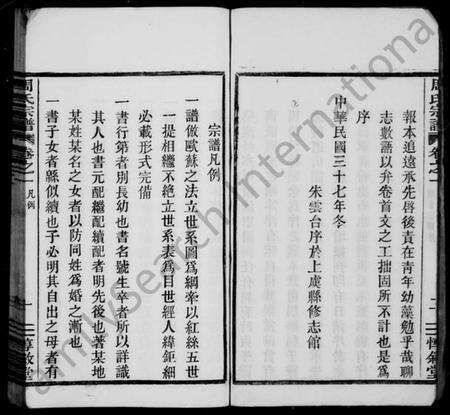 報本追遠承先啓後責在青年幼藻勉乎哉聊
志數語以弁卷首文之工拙固所不計也是爲
序
中華民國三十七年冬
朱雲台序於上虞縣修志館
宗譜凡例
一譜倣歐蘇之法立世系圖爲綱牽以紅絲五世
一提相繼不絶立世系表爲目世經人緯鉅細
必載形式完備
一書行第者別長幼也書名號生卒者所以詳識
其人也書元配繼配續配者明先後也著某地
某姓某名之女者以防同姓爲婚之漸也
一書子女者縣似續也子必明其自出之母者有
周氏宗譜
卷之一
凡例
一
惇敘堂